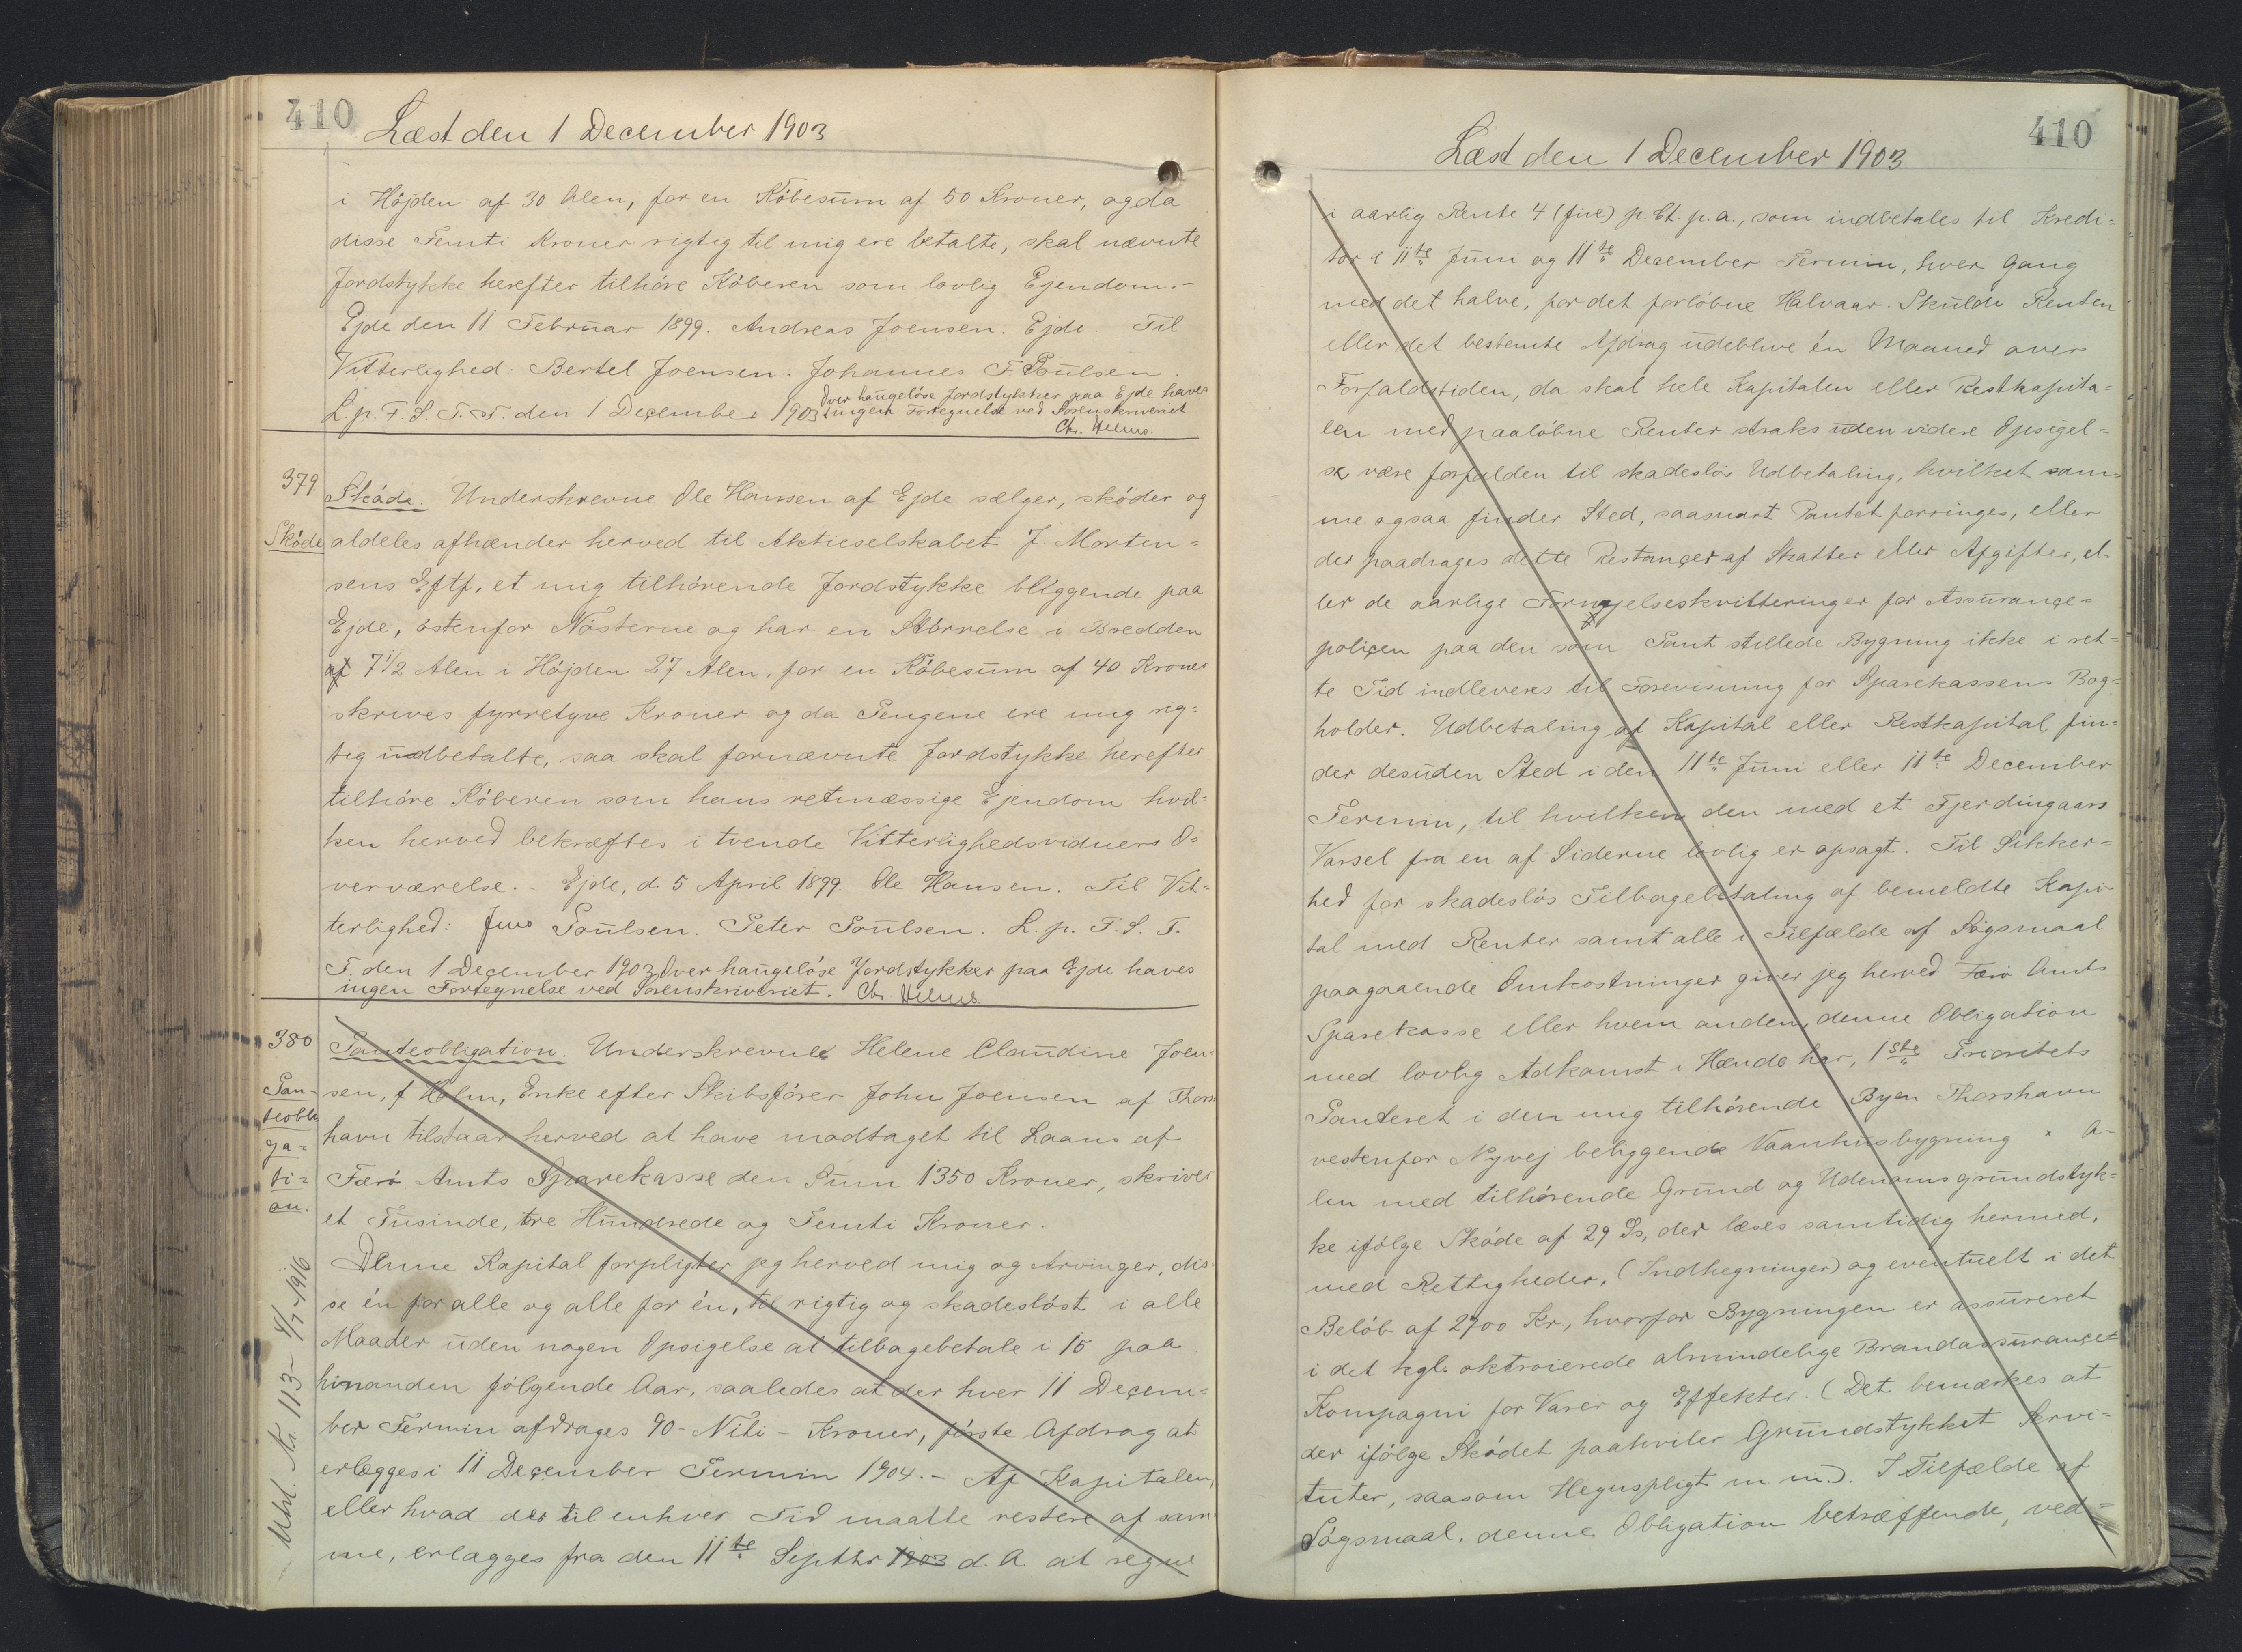 410
Læst den 1 December 1903
i Höjden af 30 Alen, for en Köbesum af 50 Kroner, og da
disse Femti Kroner rigtig til mig ere betalte, skal nævnte
Jordstykke herefter tilhöre Köberen som lovlig Ejendom.-
Ejde den 11 Februar 1899. Andreas Joensen. Ejde. Til
Vitterlighed: Bertel Joensen. Johannes F. Poulsen.
L. p. F. S. T. T. den 1 December 1903 Over haugelöse Jordstykker paa Ejde haves
ingen Fortegnelse ved Sorenskriveriet
Ch. Welms.
379
Sköde
Sköde. Underskrevne Ole Hansen af Ejde sælger, sköder og
aldeles afhænder herved til Aktieselskabet J. Morten=
sens Eftf, et mig tilhörende Jordstykke bliggende paa
Ejde, östenfor Nösterne og har en Störrelse i Bredden
af 7 1/2 Alen i Höjden 27 Alen, for en Köbesum af 40 Kroner
skrives fyrretyve Kroner og da Pengene ere mig rig=
tig udbetalte, saa skal fornævnte Jordstykke herefter
tilhöre Köberen som hans retmæssige Ejendom hvil=
ken herved bekræftes i tvende Vitterlighedsvidners O=
verværelse.- Ejde, d. 5 April 1899. Ole Hansen. Til Vit=
terlighed: Jens Poulsen. Peter Poulsen. L. p. F. S. T.
T. den 1 December 1903 Over haugelöse Jordstykker paa Ejde haves
ingen Fortegnelse ved Sorenskriveriet. Ch. Welms
380
Pan-
teobli
ga=
ti=
on.
Panteobligation. Underskrevne Helene Claudine Joen=
sen, f Holm, Enke efter Skibsförer John Joensen af Thors
havn tilstaar herved at have modtaget til Laans af
Færö Amts Sparekasse den Sum 1350 Kroner, skriver
et Tusinde, tre Hundrede og Femti Kroner.
Denne Kapital forpligter jeg herved mig og Arvinger, dis
se én for alle og alle for én, til rigtig og skadeslöst i alle
Maader uden nogen Opsigelse at tilbagebetale i 15 paa
hinanden fölgende Aar, saaledes at der hver 11 Decem=
ber Termin afdrages 90 - Niti - Kroner, förste Afdrag at
erlægges i 11 December Termin 1904.- Af Kapitalen,
eller hvad der til enhver Tid maatte restere af sam
me, erlægges fra den 11te Septbr 1903 d. A. at regne
Udsl. No. 113 - 4/7 - 1916
410
Læst den 1 December 1903
i aarlig Rente 4 (fire) p. Ct. p. a., som indbetales til Kredi=
tor i 11te Juni og 11te December Termin, hver Gang
med det halve, for det forlöbne Halvaar. Skulde Renten
eller det bestemte Afdrag udeblive én Maaned over
Forfaldstiden, da skal hele Kapitalen eller Restkapita=
len med paalöbne Renter straks uden videre Opsigel=
se være forfalden til skadeslös Udbetaling, hvilket sam=
me ogsaa finder Sted, saasnart Pantet forringes, eller
der paadrages dette Restancer af Skatter eller Afgifter, el-
ler de aarlige Fornyelseskvitteringer for Assurance=
policen paa den som Pant stillede Bygning ikke i ret=
te Tid indleveres til Forevisning for Sparekassens Bog=
holder. Udbetaling af Kapital eller Restkapital fin=
der desuden Sted i den 11te Juni eller 11te December
Termin, til hvilken den med et Fjerdingaars
Varsel fra en af Siderne lovlig er opsagt. Til Sikker=
hed for skadeslös Tilbagebetaling af bemeldte Kapi
tal med Renter samt alle i Tilfælde af Sögsmaal
paagaaende Omkostninger giver jeg herved Færö Amts
Sparekasse eller hvem anden, denne Obligation
med lovlig Adkomst i Hænde har, 1ste Prioritets
Panteret i den mig tilhörende Byen Thorshavn
vestenfor Nyvej beliggende Vaanhusbygning × A-
len med tilhörende Grund og Udenomsgrundstyk=
ke ifölge Sköde af 29 Ds, der læses samtidig hermed,
med Rettigheder, (Indhegninger) og eventuelt i det
Belöb af 2700 Kr, hvorfor Bygningen er assureret
i det kgl. oktroierede almindelige Brandassurancet
Kompagni for Varer og Effekter. (Det bemærkes at
der ifölge Sködet paahviler Grundstykket Servi=
tuter, saasom Hegnspligt m m.). I Tilfælde af
Sögsmaal, denne Obligation betræffende, ved=